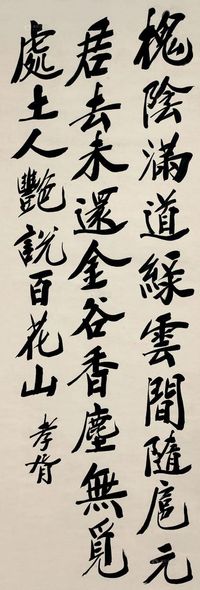 槐陰滿道綠雲間隨扈元
君去未還金谷香塵無覓
處土人艷說百花山
孝胥